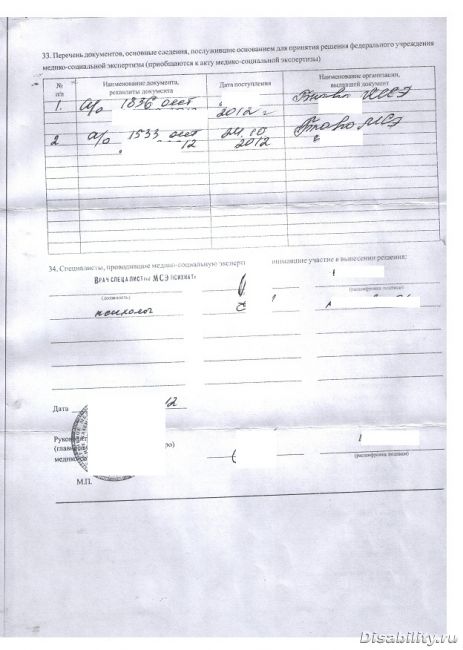 33. Перечень документов, основные сведения, послужившие основанием для принятия решения федерального учреждения
медико-социальной экспертизы (приобщаются к акту медико-социальной экспертизы)
№ п/п
Наименование документа, реквизиты документа
Дата поступления
Наименование организации, выдавшей документ
1. а/о 1836 освт
2012 г
2 а/о 1533 освт
12
24.10
2012
МСЭ
34. Специалисты, проводившие медико-социальную эксперт
имавшие участие в вынесении решения:
ВРАЧ СПЕЦИАЛИСТ МСЭ ПСИХИАТР
(должность)
(расшифровка подписи)
психолог
Дата
12
Руков
(глав
ро)
медико-со
(расшифровка подписи)
М.П.
Disability.ru